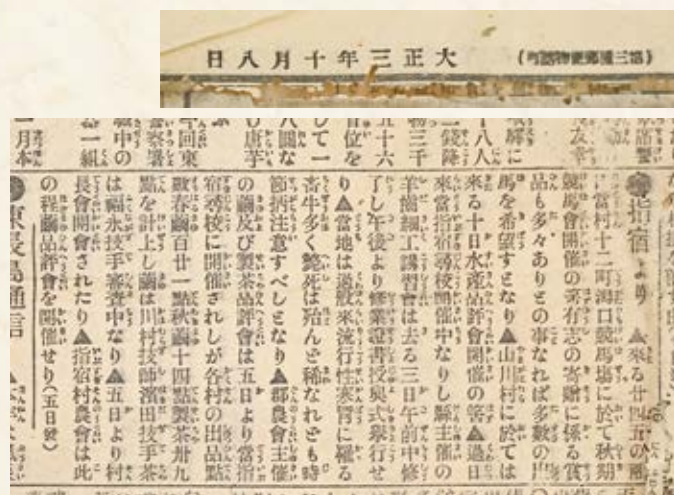 (第三種郵便物認可)
大正三年十月八日
友幸
解に
十八人
二錢降
物三千
五十六
首位を
して一
八圓な
び唐芋
年回東
警察署
中の
器一組
一月本
●指宿より ▲來る廿四五の兩
日當村十二町潟口競馬塲に於て秋期
競馬會開催の筈有志の寄贈に係る賞
品も多々ありとの事なれば多數の出
馬を希望すとなり▲山川村に於ては
來る十日水産品評會開催の筈▲過日
來當指宿尋校開催中なりし縣主催の
羊齒細工講習會は去る三日午前中修
了し午後より修業證書授與式擧行せ
り▲當地は過般來流行性寒胃に罹る
畜牛多く斃死は殆んど稀なれども時
節柄注意すべしとなり▲郡農會主催
の繭及び製茶品評會は五日より當指
宿尋校に開催されしが各村の出品點
數春繭百廿一點秋繭十四點製茶卅九
點を計上し繭は川村技師濱田技手茶
は福永技手審査中なり▲五日より村
長會開會されたり▲指宿村農會は此
の程繭品評會を開催せり(五日發)
●東長島通信